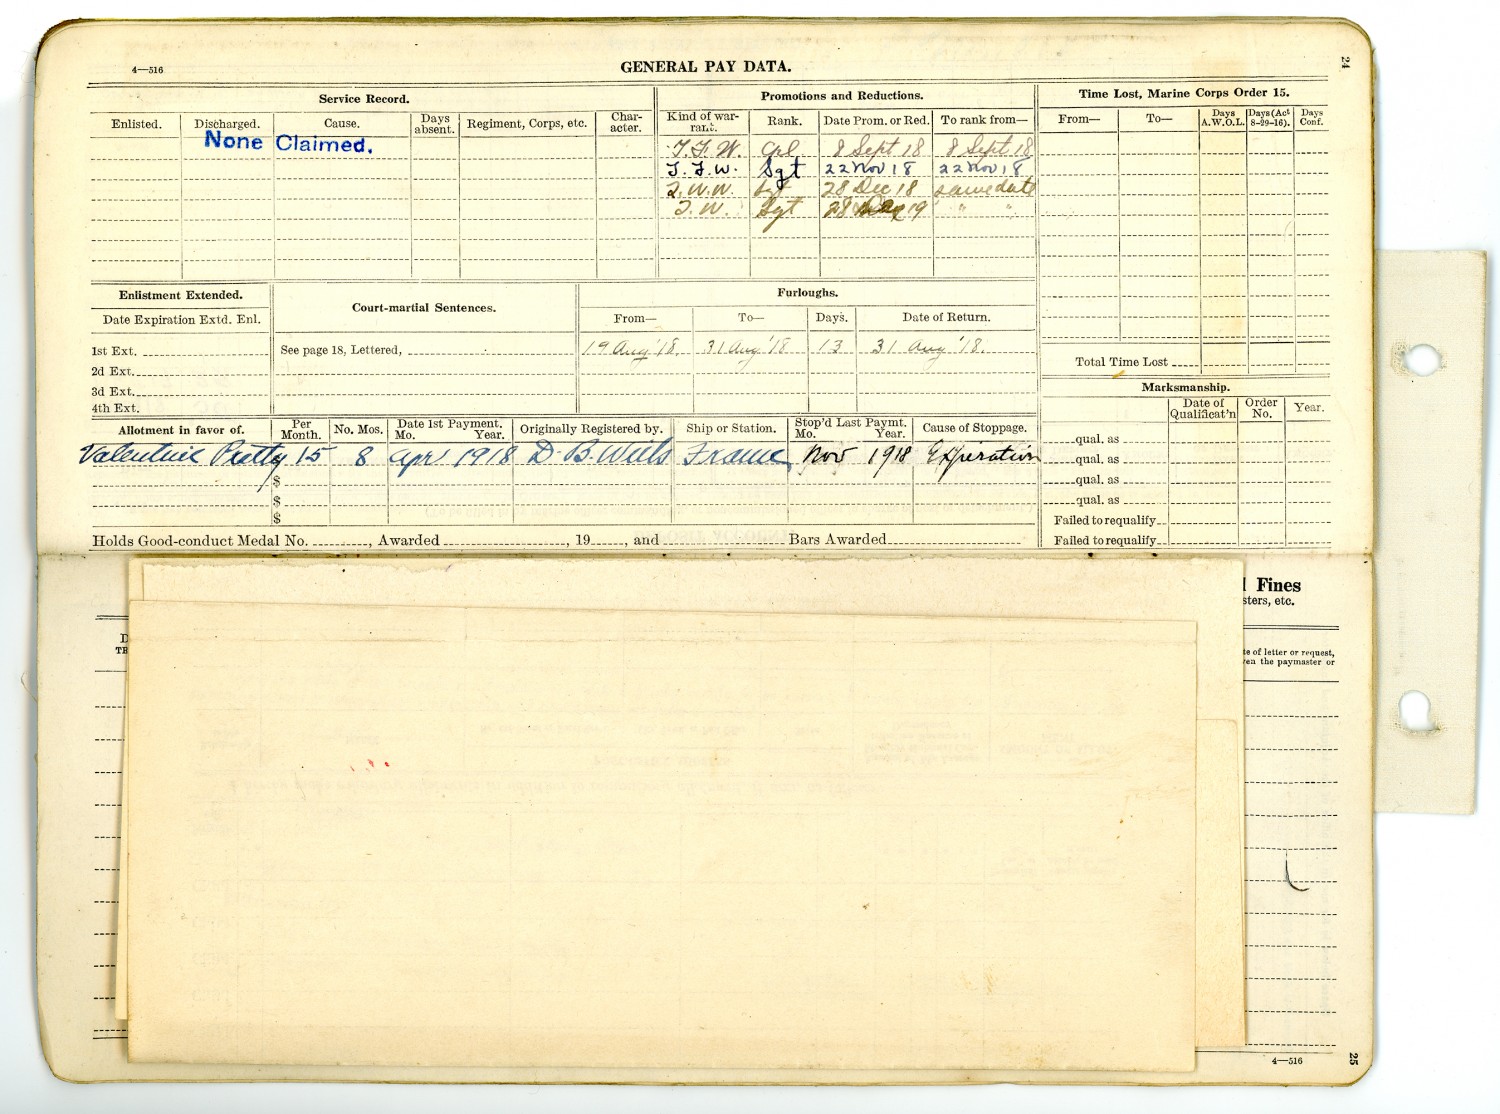 4—516
GENERAL PAY DATA.
24
Service Record.
Enlisted. Discharged. Cause. Days absent. Regiment, Corps, etc. Character.
None Claimed.
Promotions and Reductions.
Kind of warrant. Rank. Date Prom. or Red. To rank from—
T. F. W. Cpl 8 Sept 18 8 Sept 18
T. F. W. Sgt 22 Nov 18 22 Nov 18
T. W. W. Sgt 28 Dec 18 same date
T. W. Sgt 28 19 " "
Time Lost, Marine Corps Order 15.
From— To— Days A.W.O.L. Days (Act 8-29-16). Days Conf.
Total Time Lost
Enlistment Extended.
Date Expiration Extd. Enl.
1st Ext.
2d Ext.
3d Ext.
4th Ext.
Court-martial Sentences.
See page 18, Lettered,
Furloughs.
From— To— Days. Date of Return.
19 Aug '18. 31 Aug '18 13 31 Aug '18.
Marksmanship.
Date of Qualificat'n Order No. Year.
qual. as
qual. as
qual. as
qual. as
Failed to requalify
Failed to requalify
Allotment in favor of. Per Month. No. Mos. Date 1st Payment. Mo. Year. Originally Registered by. Ship or Station. Stop'd Last Paymt. Mo. Year. Cause of Stoppage.
Valentine Pretty 15 8 Apr 1918 D. B. Wills France Nov 1918 Expiration
$
$
$
Holds Good-conduct Medal No. , Awarded , 19 , and Bars Awarded
Fines
sters, etc.
D
TR
te of letter or request,
ven the paymaster or
4—516
25